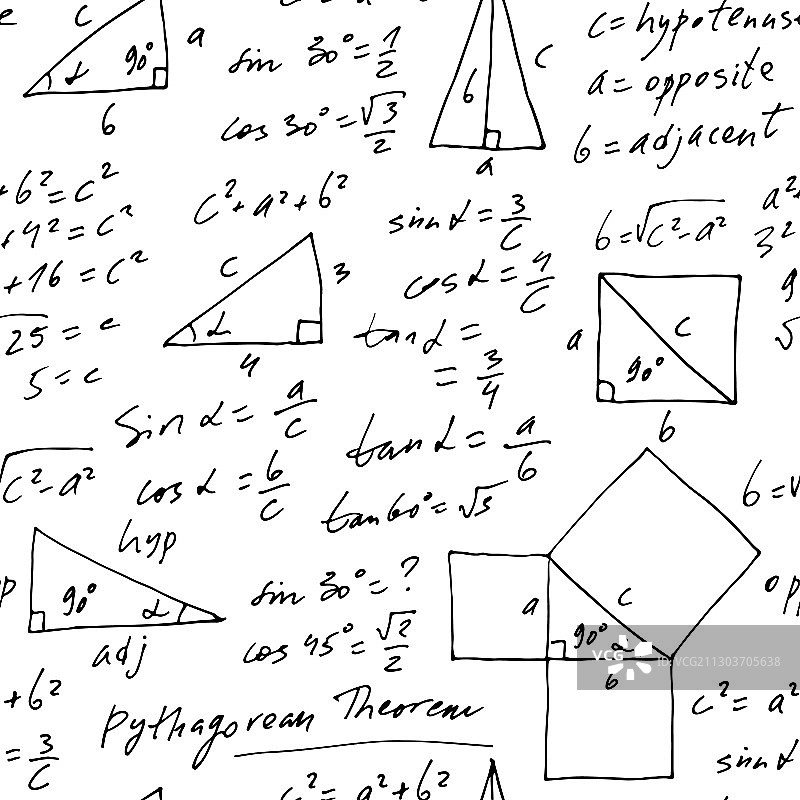 c
a
90°
α
6
sin 30° = 1/2
cos 30° = √3/2
6
c
a
c = hypotenuse
a = opposite
6 = adjacent
+6² = c²
+4² = c²
+16 = c²
√25 = c
5 = c
c² + a² + 6²
c
3
α
4
sin α = 3/c
cos α = 4/c
tan α =
= 3/4
6 = √c² - a²
a² +
3²
9
√
a
c
90°
b
sin α = a/c
cos α = 6/c
tan α = a/6
tan 60° = √3
√c² - a²
hyp
90°
α
adj
sin 30° = ?
cos 45° = √2/2
6 = √
a
c
90°
α
6
opp
VCG
ID:VCG211303705638
+6²
= 3/c
Pythagorean Theorem
c² = a²
sin α
c² = a² + 6²